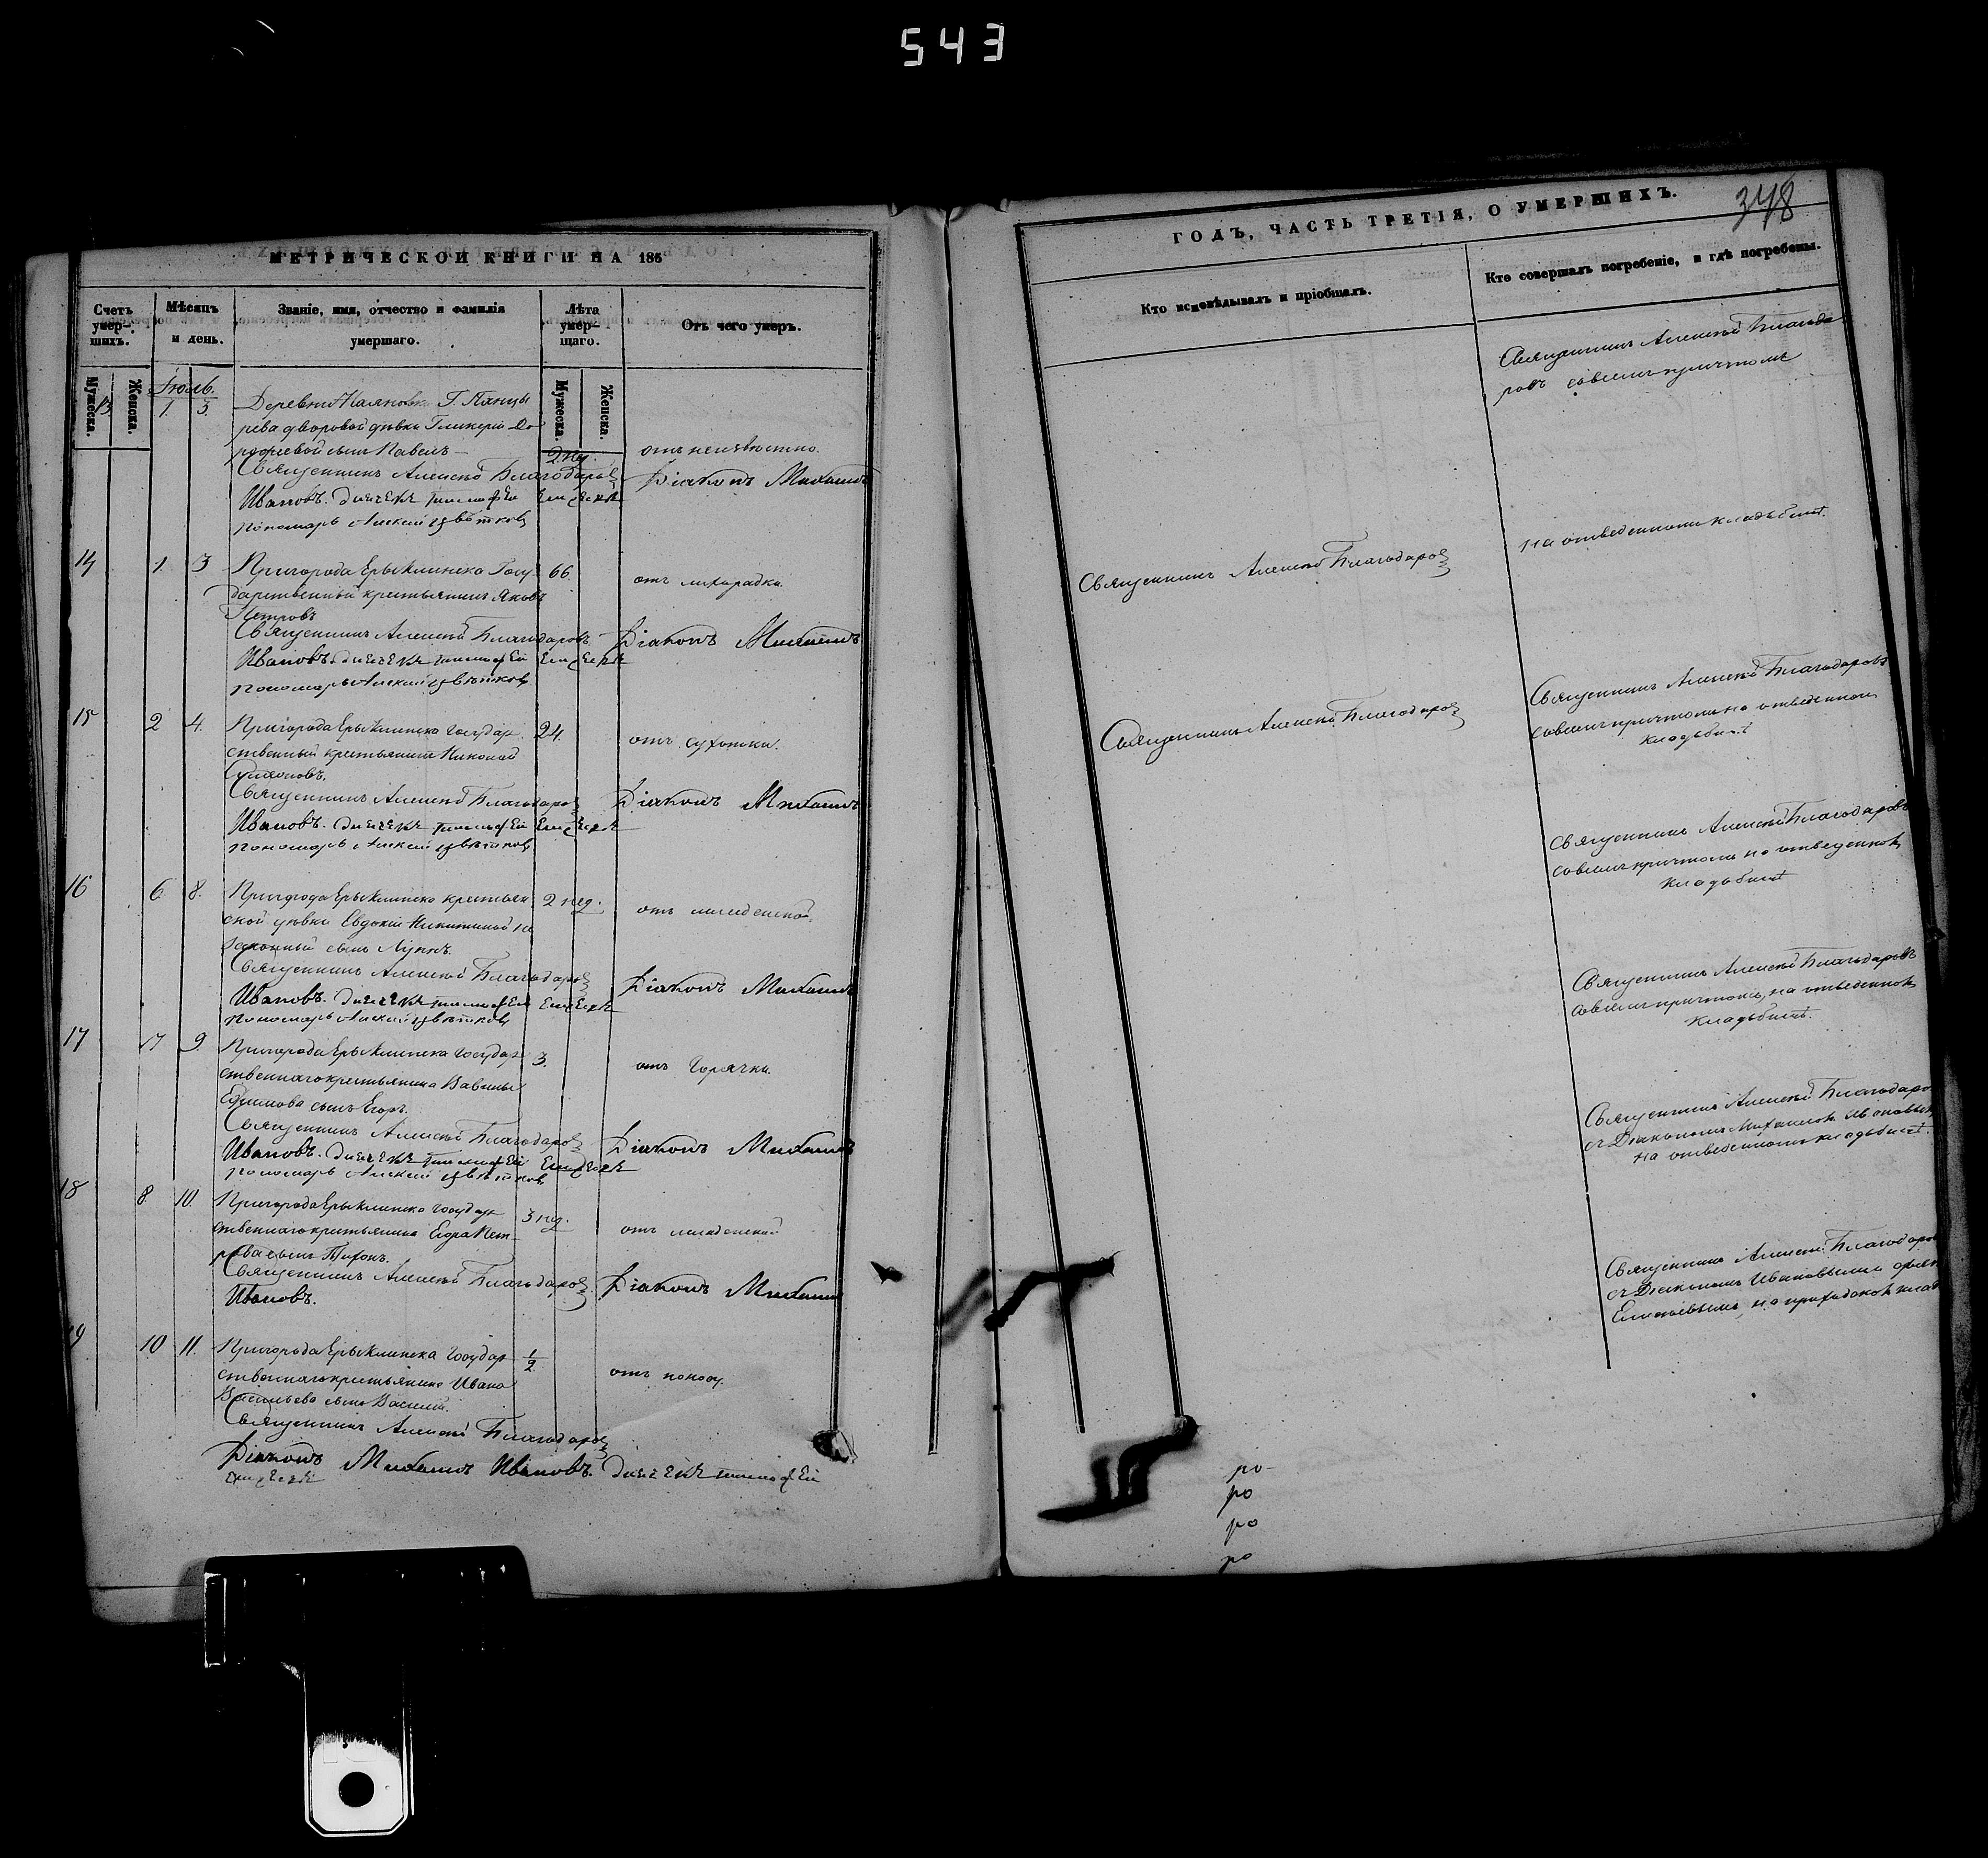 543
МЕТРИЧЕСКОЙ КНИГИ НА 185
Счетъ умер-шихъ.
Мѣсяцъ и день.
Званіе, имя, отчество и фамилія умершаго.
Лѣта умер-щаго.
Отъ чего умеръ.
Мужеска.
Женска.
Мужеска.
Женска.
Іюль.
13 1. 3. Деревни Г. Панцы
рева дворовой дѣвки Гликеріи До
рофеевой сынъ Павелъ 2 нед. отъ неизвѣстно.
Священникъ Алексѣй Благодаровъ Діаконъ Михаилъ
Ивановъ. Дьячекъ Тимофей
Пономарь Алексѣй Цвѣтковъ
14 1 3 Пригорода Ерыклинска Госу 66. отъ лихорадки.
дарственный крестьянинъ Яковъ
Петровъ
Священникъ Алексѣй Благодаровъ Діаконъ Михаилъ
Ивановъ. Дьячекъ Тимофей
Пономарь Алексѣй Цвѣтковъ
15 2 4. Пригорода Ерыклинска Государ 24. отъ сухотки.
ственный крестьянинъ Николай
Священникъ Алексѣй Благодаровъ Діаконъ Михаилъ
Ивановъ. Дьячекъ Тимофей
Пономарь Алексѣй Цвѣтковъ
16 6 8. Пригорода Ерыклинска крестьян 2 нед. отъ младенской.
ской дѣвки Евдокіи Никитиной не
законный сынъ
Священникъ Алексѣй Благодаровъ Діаконъ Михаилъ
Ивановъ. Дьячекъ Тимофей
Пономарь Алексѣй Цвѣтковъ
17 7 9. Пригорода Ерыклинска Государ 3. отъ горячки.
ственнаго крестьянина Вавилы
Ефимова сынъ Егоръ.
Священникъ Алексѣй Благодаровъ Діаконъ Михаилъ
Ивановъ. Дьячекъ Тимофей
Пономарь Алексѣй Цвѣтковъ
18 8 10. Пригорода Ерыклинска Государ 3 нед. отъ младенской
ственнаго крестьянина Егора Пет
рова сынъ Тихонъ.
Священникъ Алексѣй Благодаровъ Діаконъ Михаилъ
Ивановъ.
19 10 11. Пригорода Ерыклинска Государ 1/2 отъ поносу.
ственнаго крестьянина Ивана
Васильева сынъ Василій.
Священникъ Алексѣй Благодаровъ
Діаконъ Михаилъ Ивановъ. Дьячекъ Тимофей
ГОДЪ, ЧАСТЬ ТРЕТІЯ, О УМЕРШИХЪ.
348
Кто исповѣдывалъ и пріобщалъ.
Кто совершалъ погребеніе, и гдѣ погребены.
Священникъ Алексѣй Благода
ровъ со всемъ причтомъ
на отведенномъ кладбищѣ.
Священникъ Алексѣй Благодаровъ
Священникъ Алексѣй Благодаровъ
со всемъ причтомъ на отведенномъ
кладбищѣ
Священникъ Алексѣй Благодаровъ
Священникъ Алексѣй Благодаровъ
со всемъ причтомъ на отведенномъ
кладбищѣ
Священникъ Алексѣй Благодаровъ
со всемъ причтомъ, на отведенномъ
кладбищѣ.
Священникъ Алексѣй Благодаро
съ Діакономъ Михаиломъ Ивановымъ
на отведенномъ кладбищѣ.
Священникъ Алексѣй Благодаров
съ Діакономъ Ивановымъ и
на приходскомъ клад
ро-
ро
ро
ро